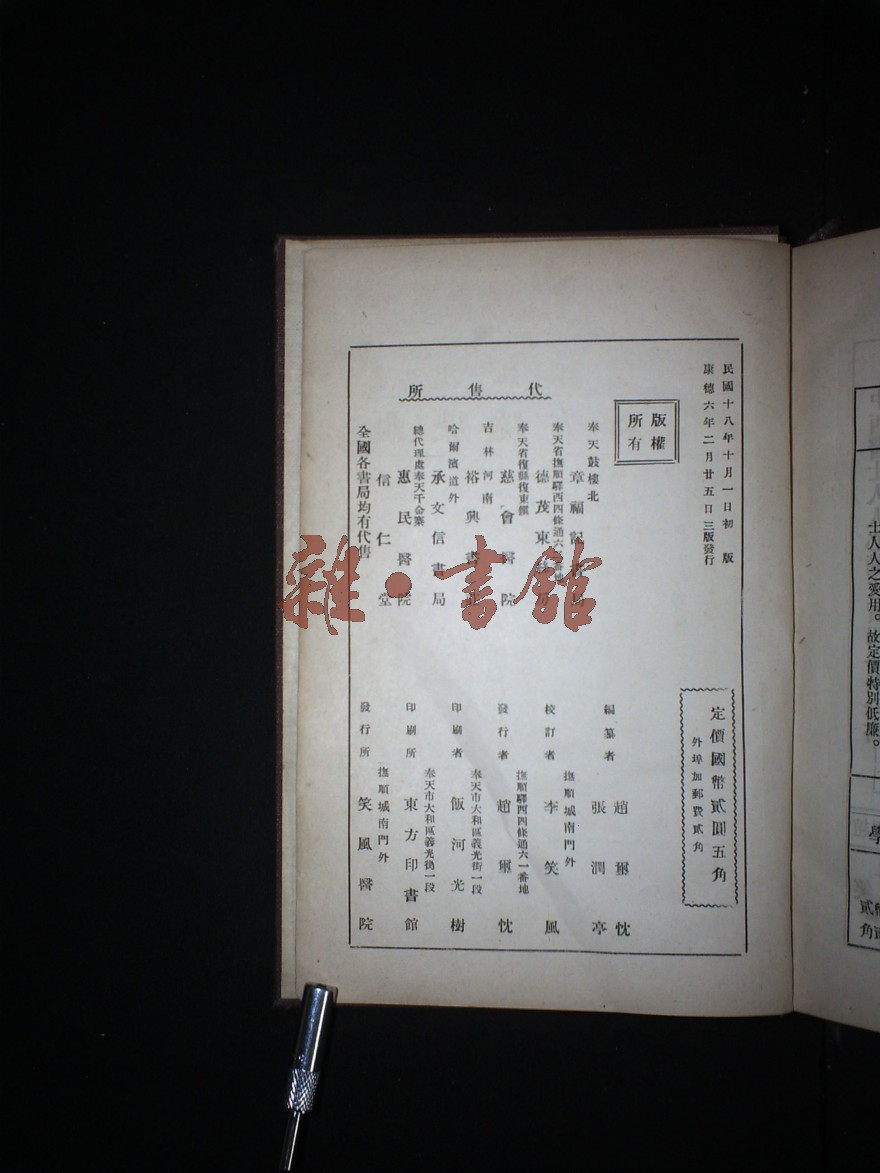 民國十八年十月一日初版
康德六年二月廿五日三版發行
版權
所有
定價國幣貳圓五角
外埠加郵費貳角
代售所
奉天鼓樓北
章福記書局
奉天省撫順驛西四條通六一番地
德茂東
奉天省復縣復東鎭
慈會醫院
吉林河南
裕興書
哈爾濱道外
承文信書局
總代理處奉天千金寨
惠民醫院
信仁堂
全國各書局均有代售
編纂者
趙
忱
張潤亭
校訂者
撫順城南門外
李笑風
發行者
撫順驛西四條通六一番地
趙
忱
印刷者
奉天市大和區義光街一段
飯河光樹
印刷所
奉天市大和區義光街一段
東方印書館
發行所
撫順城南門外
笑風醫院
士人人之愛用。故定價特別低廉。
學
雜·書館